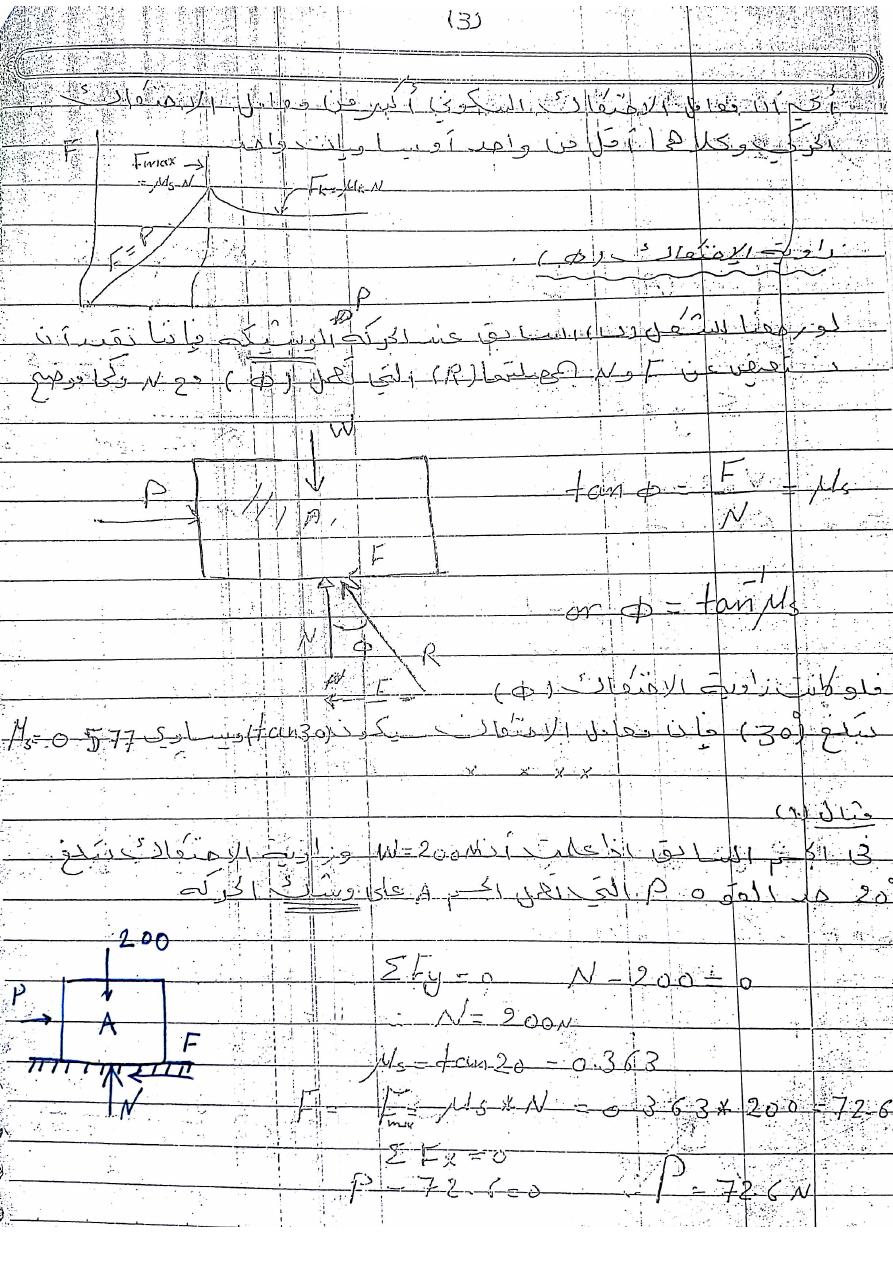 (3)
أي أن معامل الاحتكاك السكوني أكبر من معامل الاحتكاك
الحركي وكلاهما أقل من واحد أو يساويان واحد
F
Fmax
= μs N
Fk = μk N
F = P
P
زاوية الاحتكاك (Φ)
لو رجعنا للشكل (1) السابق عند الحركة الوشيكة فإننا نقدر أن
نعيض عن F و N بمحصلتهما (R) التي تعمل (Φ) مع N وكما موضح
W
P
A
F
tan Φ = F/N = μs
N
Φ
R
F
or Φ = tan⁻¹ μs
فلو كانت زاوية الاحتكاك (Φ)
تبلغ (30°) فإن معامل الاحتكاك سيكون (tan30) ويساوي μs = 0.577
x x x x
مثال (1)
في الجسم السابق اذا علمت أن W=200N وزاوية الاحتكاك تبلغ
20° جد القوة P التي تجعل الجسم A على وشك الحركة
200
P
A
F
N
ΣFy = 0 N - 200 = 0
∴ N = 200N
μs = tan20 = 0.363
F = Fmax = μs * N = 0.363 * 200 = 72.6
ΣFx = 0
P - 72.6 = 0 ∴ P = 72.6 N